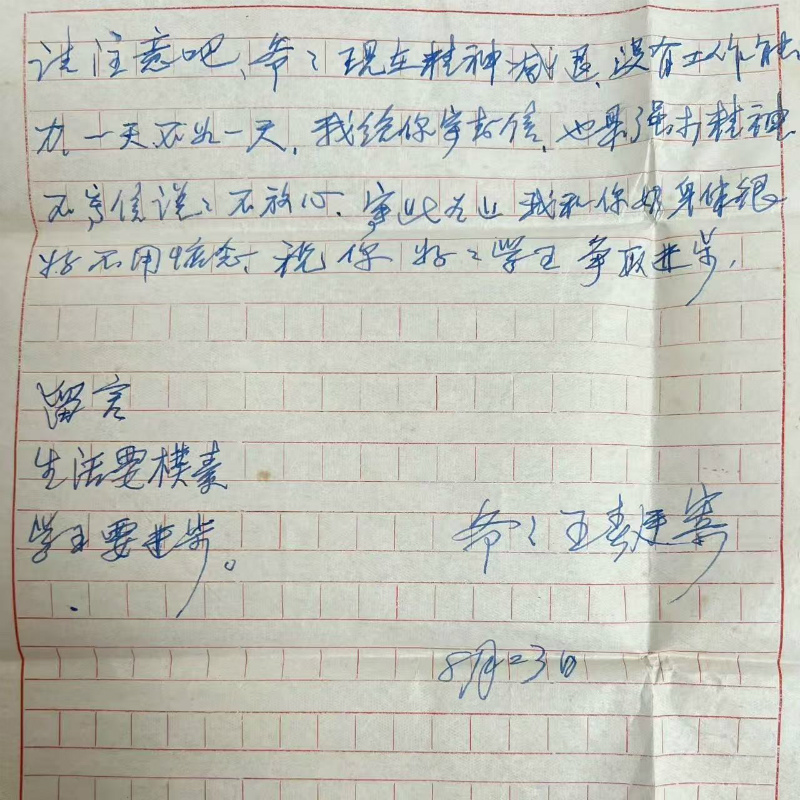 请注意吧、爷〻现在精神减退、没有工作能
力、一天不如一天、我给你写封信、也是强打精神
不写信说〻不放心、写此为止 我和你奶身体很
好不用惦念、祝你 好〻学习 争取进步,
留言
生活要樸素
学习要进步。
爷〻王春廷寄
8月23日